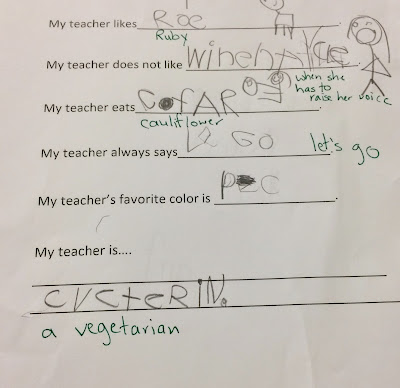 My teacher likes Roe.
Ruby
My teacher does not like
when she has to raise her voice
My teacher eats CofAR.
cauliflower
My teacher always says L2 GO.
let's go
My teacher's favorite color is
My teacher is....
CVCteRiN.
a vegetarian